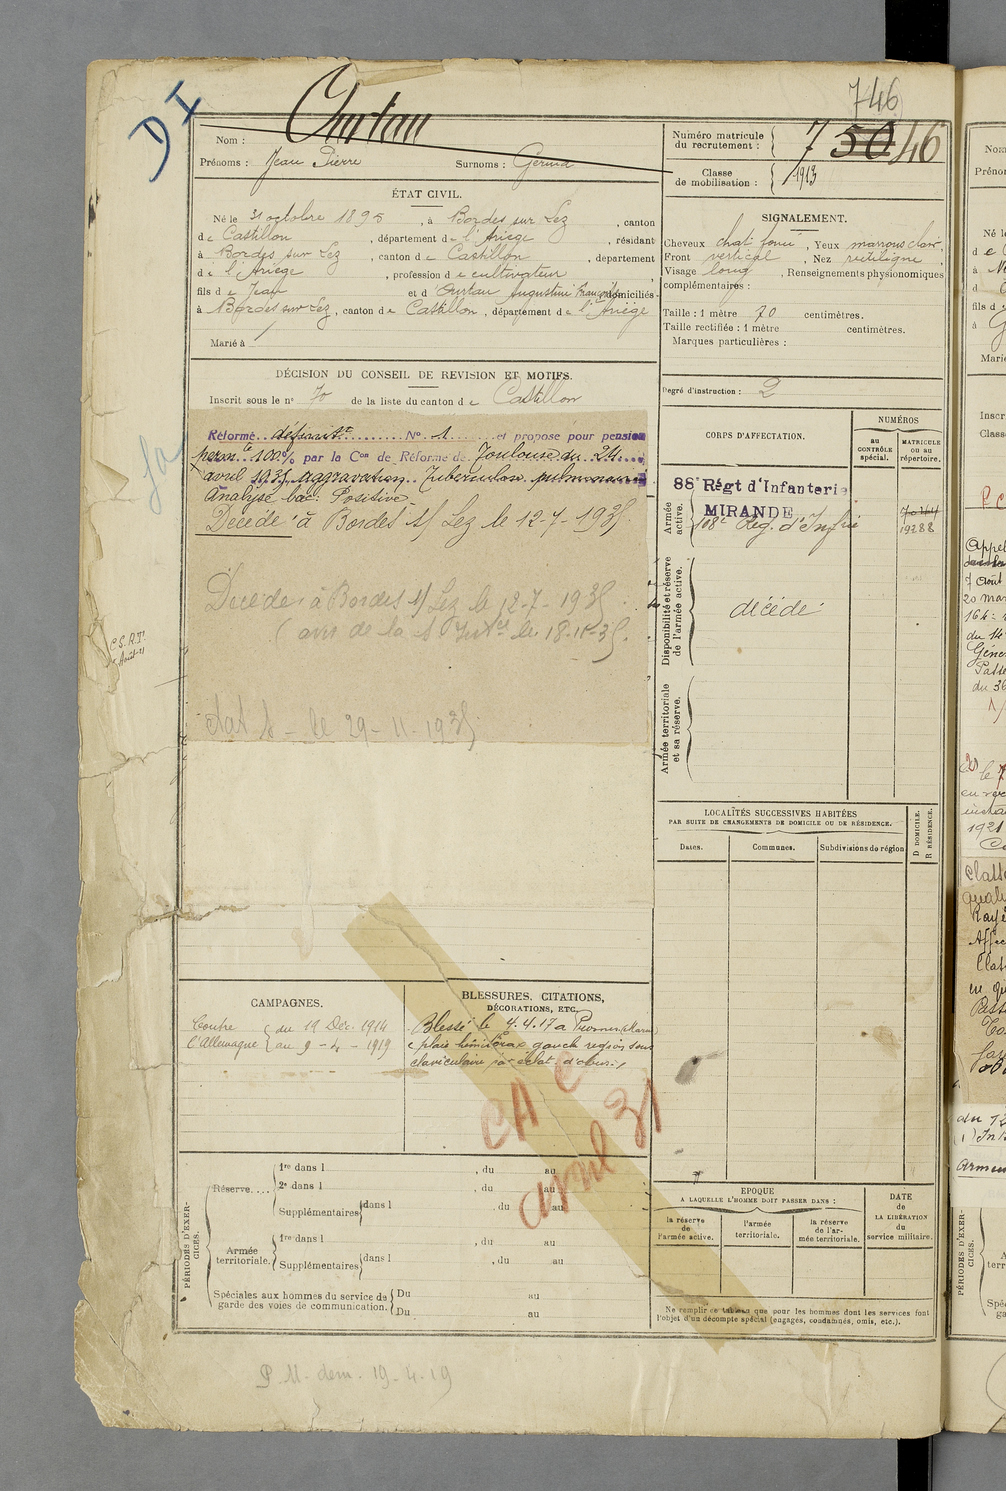 746
D I
Ourtau
Nom :
Prénoms : Jean Pierre Surnoms :
Numéro matricule
du recrutement : 7 50 46
Classe
de mobilisation : 1913
ÉTAT CIVIL.
Né le 31 octobre 1895, à Bordes sur Lez, canton
de Castillon, département de l'Ariège, résidant
à Bordes sur Lez, canton de Castillon, département
de l'Ariège, profession de cultivateur
fils de Jean et d'Ourtau Augustine Françoise domiciliés
à Bordes sur Lez, canton de Castillon, département de l'Ariège
Marié à
SIGNALEMENT.
Cheveux chat. foncé, Yeux marrons clair,
Front vertical, Nez rectiligne,
Visage long, Renseignements physionomiques
complémentaires :
Taille : 1 mètre 70 centimètres.
Taille rectifiée : 1 mètre centimètres.
Marques particulières :
Degré d'instruction : 2
DÉCISION DU CONSEIL DE REVISION ET MOTIFS.
Inscrit sous le n° 70 de la liste du canton de Castillon
Réformé définitt N° 1 et proposé pour pension
perm. 100% par la Con de Réforme de Toulouse du 24
avril 1935 aggravation. Tuberculose pulmonaire
Analyse bac : Positive
Décédé à Bordes s/ Lez le 12-7-1935.
Décédé à Bordes s/ Lez le 12-7-1935
le 18-11-35.
le 29-11-1935
C.S.R.T.
CORPS D'AFFECTATION.
NUMÉROS
au
CONTRÔLE
spécial.
MATRICULE
ou au
répertoire.
Armée
active.
88e Régt d'Infanterie
MIRANDE
108e Rég. d'Infrie
19288
Disponibilité et réserve
de l'armée active.
décédé
Armée territoriale
et sa réserve.
LOCALITÉS SUCCESSIVES HABITÉES
PAR SUITE DE CHANGEMENTS DE DOMICILE OU DE RÉSIDENCE.
Dates.
Communes.
Subdivisions de région
D DOMICILE.
R RÉSIDENCE.
CAMPAGNES.
Contre du 19 Déc. 1914
l'Allemagne au 9 - 4 - 1919
BLESSURES, CITATIONS,
DÉCORATIONS, ETC.
Blessé le 4.4.17 à
plaie hémithorax gauch région sous
claviculaire par éclat d'obus.
CA C
avril 31
PÉRIODES D'EXERCICES.
Réserve....
1re dans l , du au
2e dans l , du au
Supplémentaires dans l , du au
Armée
territoriale.
1re dans l , du au
Supplémentaires dans l , du au
Spéciales aux hommes du service de
garde des voies de communication.
Du au
Du au
EPOQUE
A LAQUELLE L'HOMME DOIT PASSER DANS :
la réserve
de
l'armée active.
l'armée
territoriale.
la réserve
de l'armée territoriale.
DATE
de
LA LIBÉRATION
du
service militaire.
Ne remplir ce tableau que pour les hommes dont les services font
l'objet d'un décompte spécial (engagés, condamnés, omis, etc.).
P.M. dem. 19-4-19